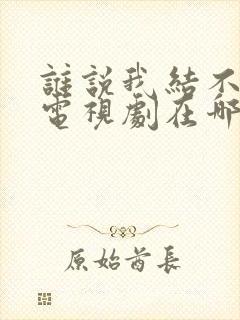 誰説我結不
電視劇在哪
原始酋長